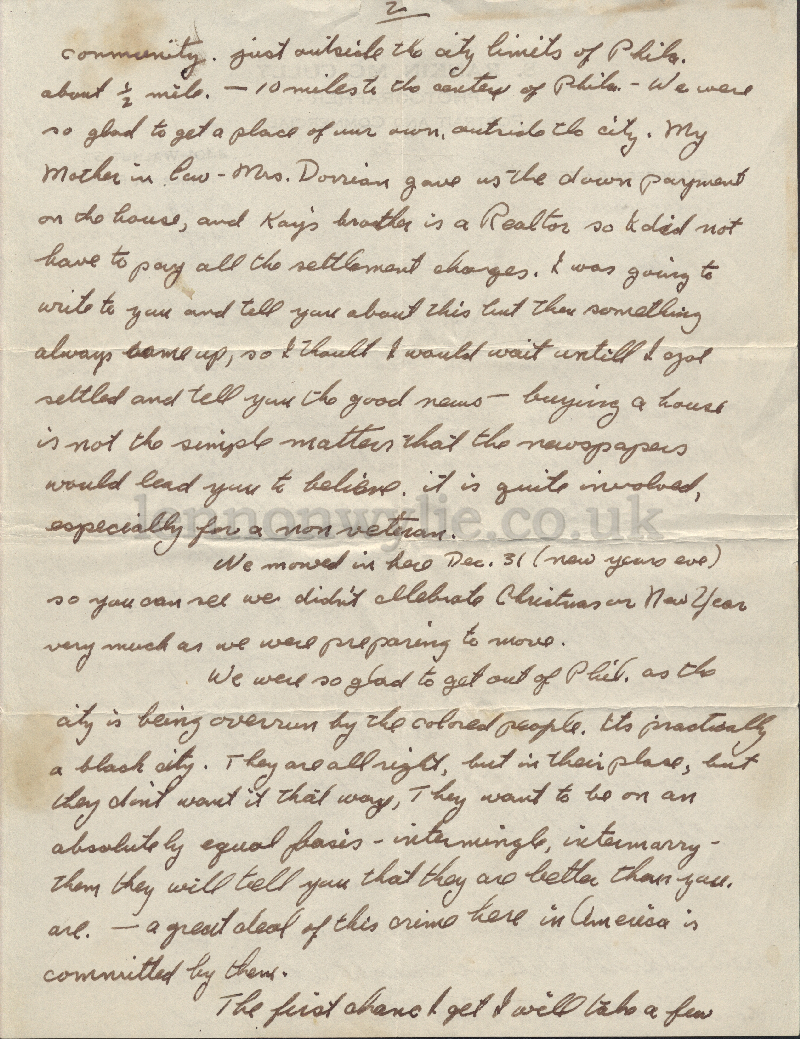 2
community. just outside the city limits of Phila.
about ½ mile. — 10 miles to the center of Phila. - We were
so glad to get a place of our own, outside the city. My
Mother in law - Mrs. Dorrian gave us the down payment
on the house, and Kay's brother is a Realtor so I did not
have to pay all the settlement charges. I was going to
write to you and tell you about this but then something
always came up, so I thouht I would wait untill I got
settled and tell you the good news - buying a house
is not the simple matters that the newspapers
would lead you to believe. it is quite involved,
lennonwylie.co.uk
especially for a non veteran.
We moved in here Dec. 31 (new years eve)
so you can see we didn't celebrate Christmas or New Year
very much as we were preparing to move.
We were so glad to get out of Phil. as the
city is being overrun by the colored people. Its practically
a black city. They are all right, but in their place, but
they don't want it that way, They want to be on an
absolutely equal basis - intermingle, intermarry -
them they will tell you that they are better than you.
are. — a great deal of this crime here in America is
committed by them.
The first chanc I get I will take a few